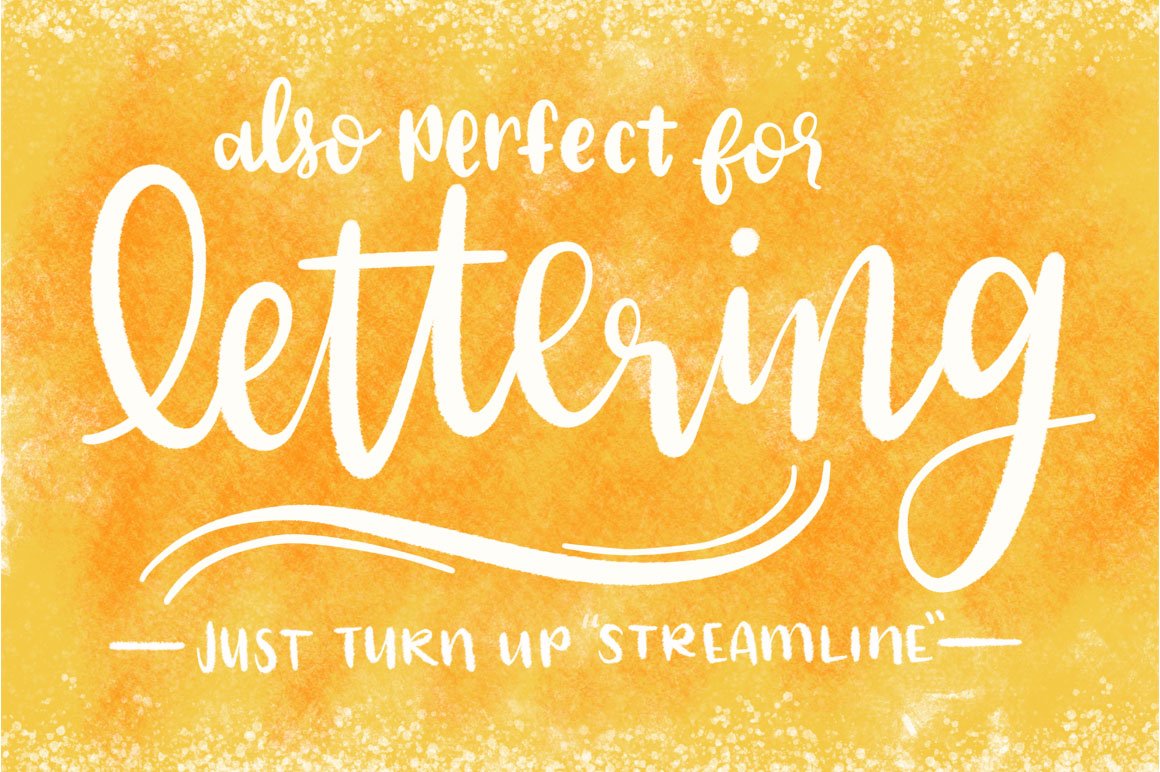 also perfect for
lettering
JUST TURN UP "STREAMLINE"